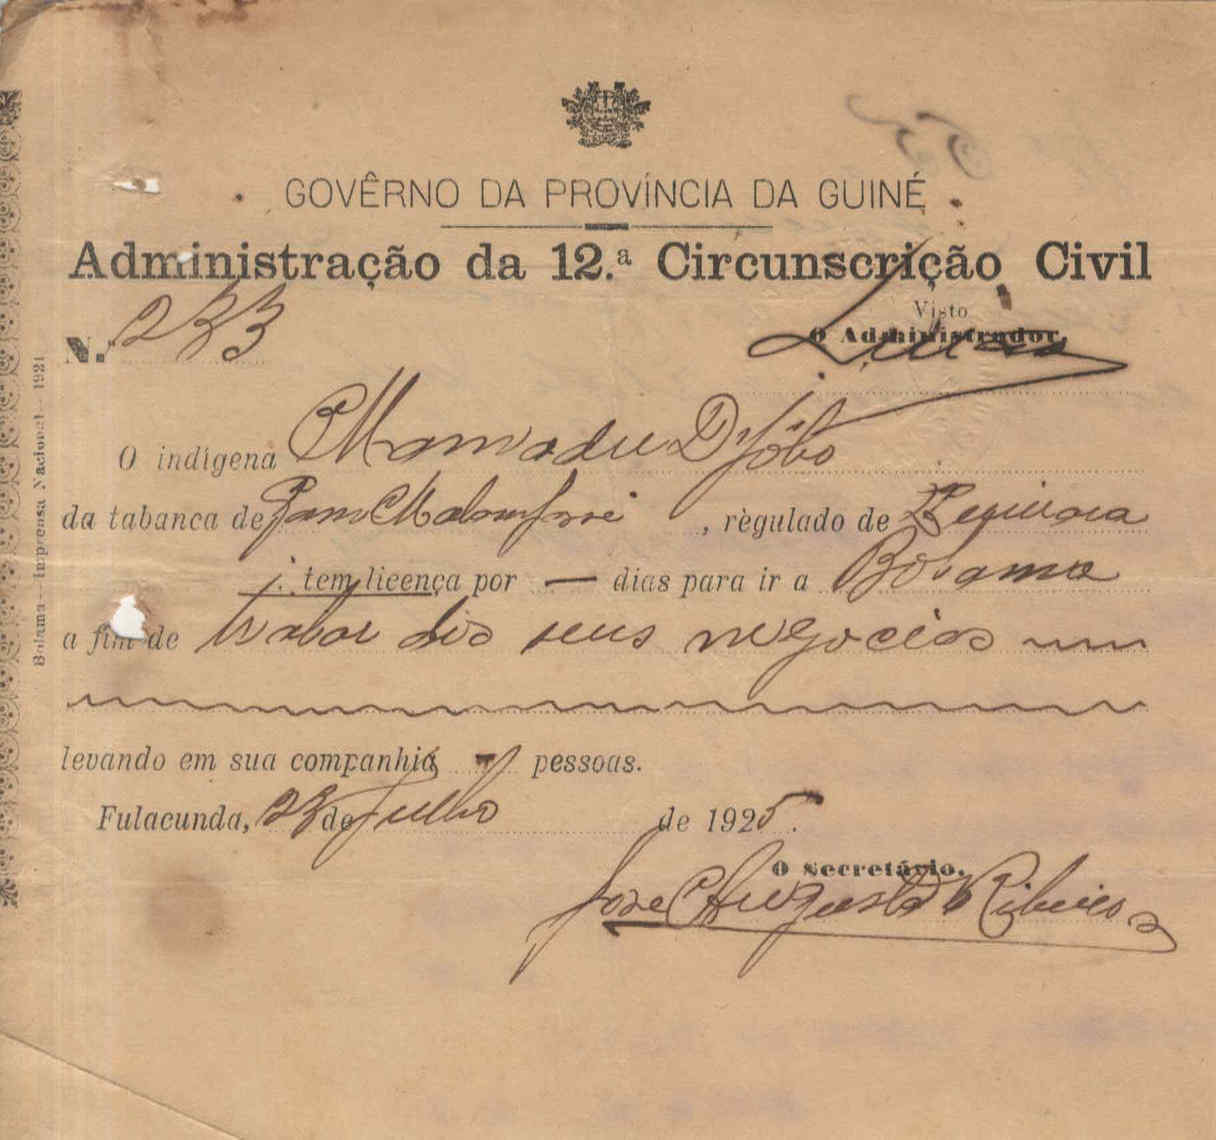 GOVÊRNO DA PROVÍNCIA DA GUINÉ
Administração da 12.ª Circunscrição Civil
N.º 233
Visto
O Administrador,
O indígena Mamadu Djóbo
da tabanca de , règulado de
tem licença por — dias para ir a Bolama
a fim de tratar dos seus negocios
levando em sua companhia pessoas.
Fulacunda, 23 de Julho de 1925.
O Secretário,
José Augusto Ribeiro
Bolama—Imprensa Nacional—1921